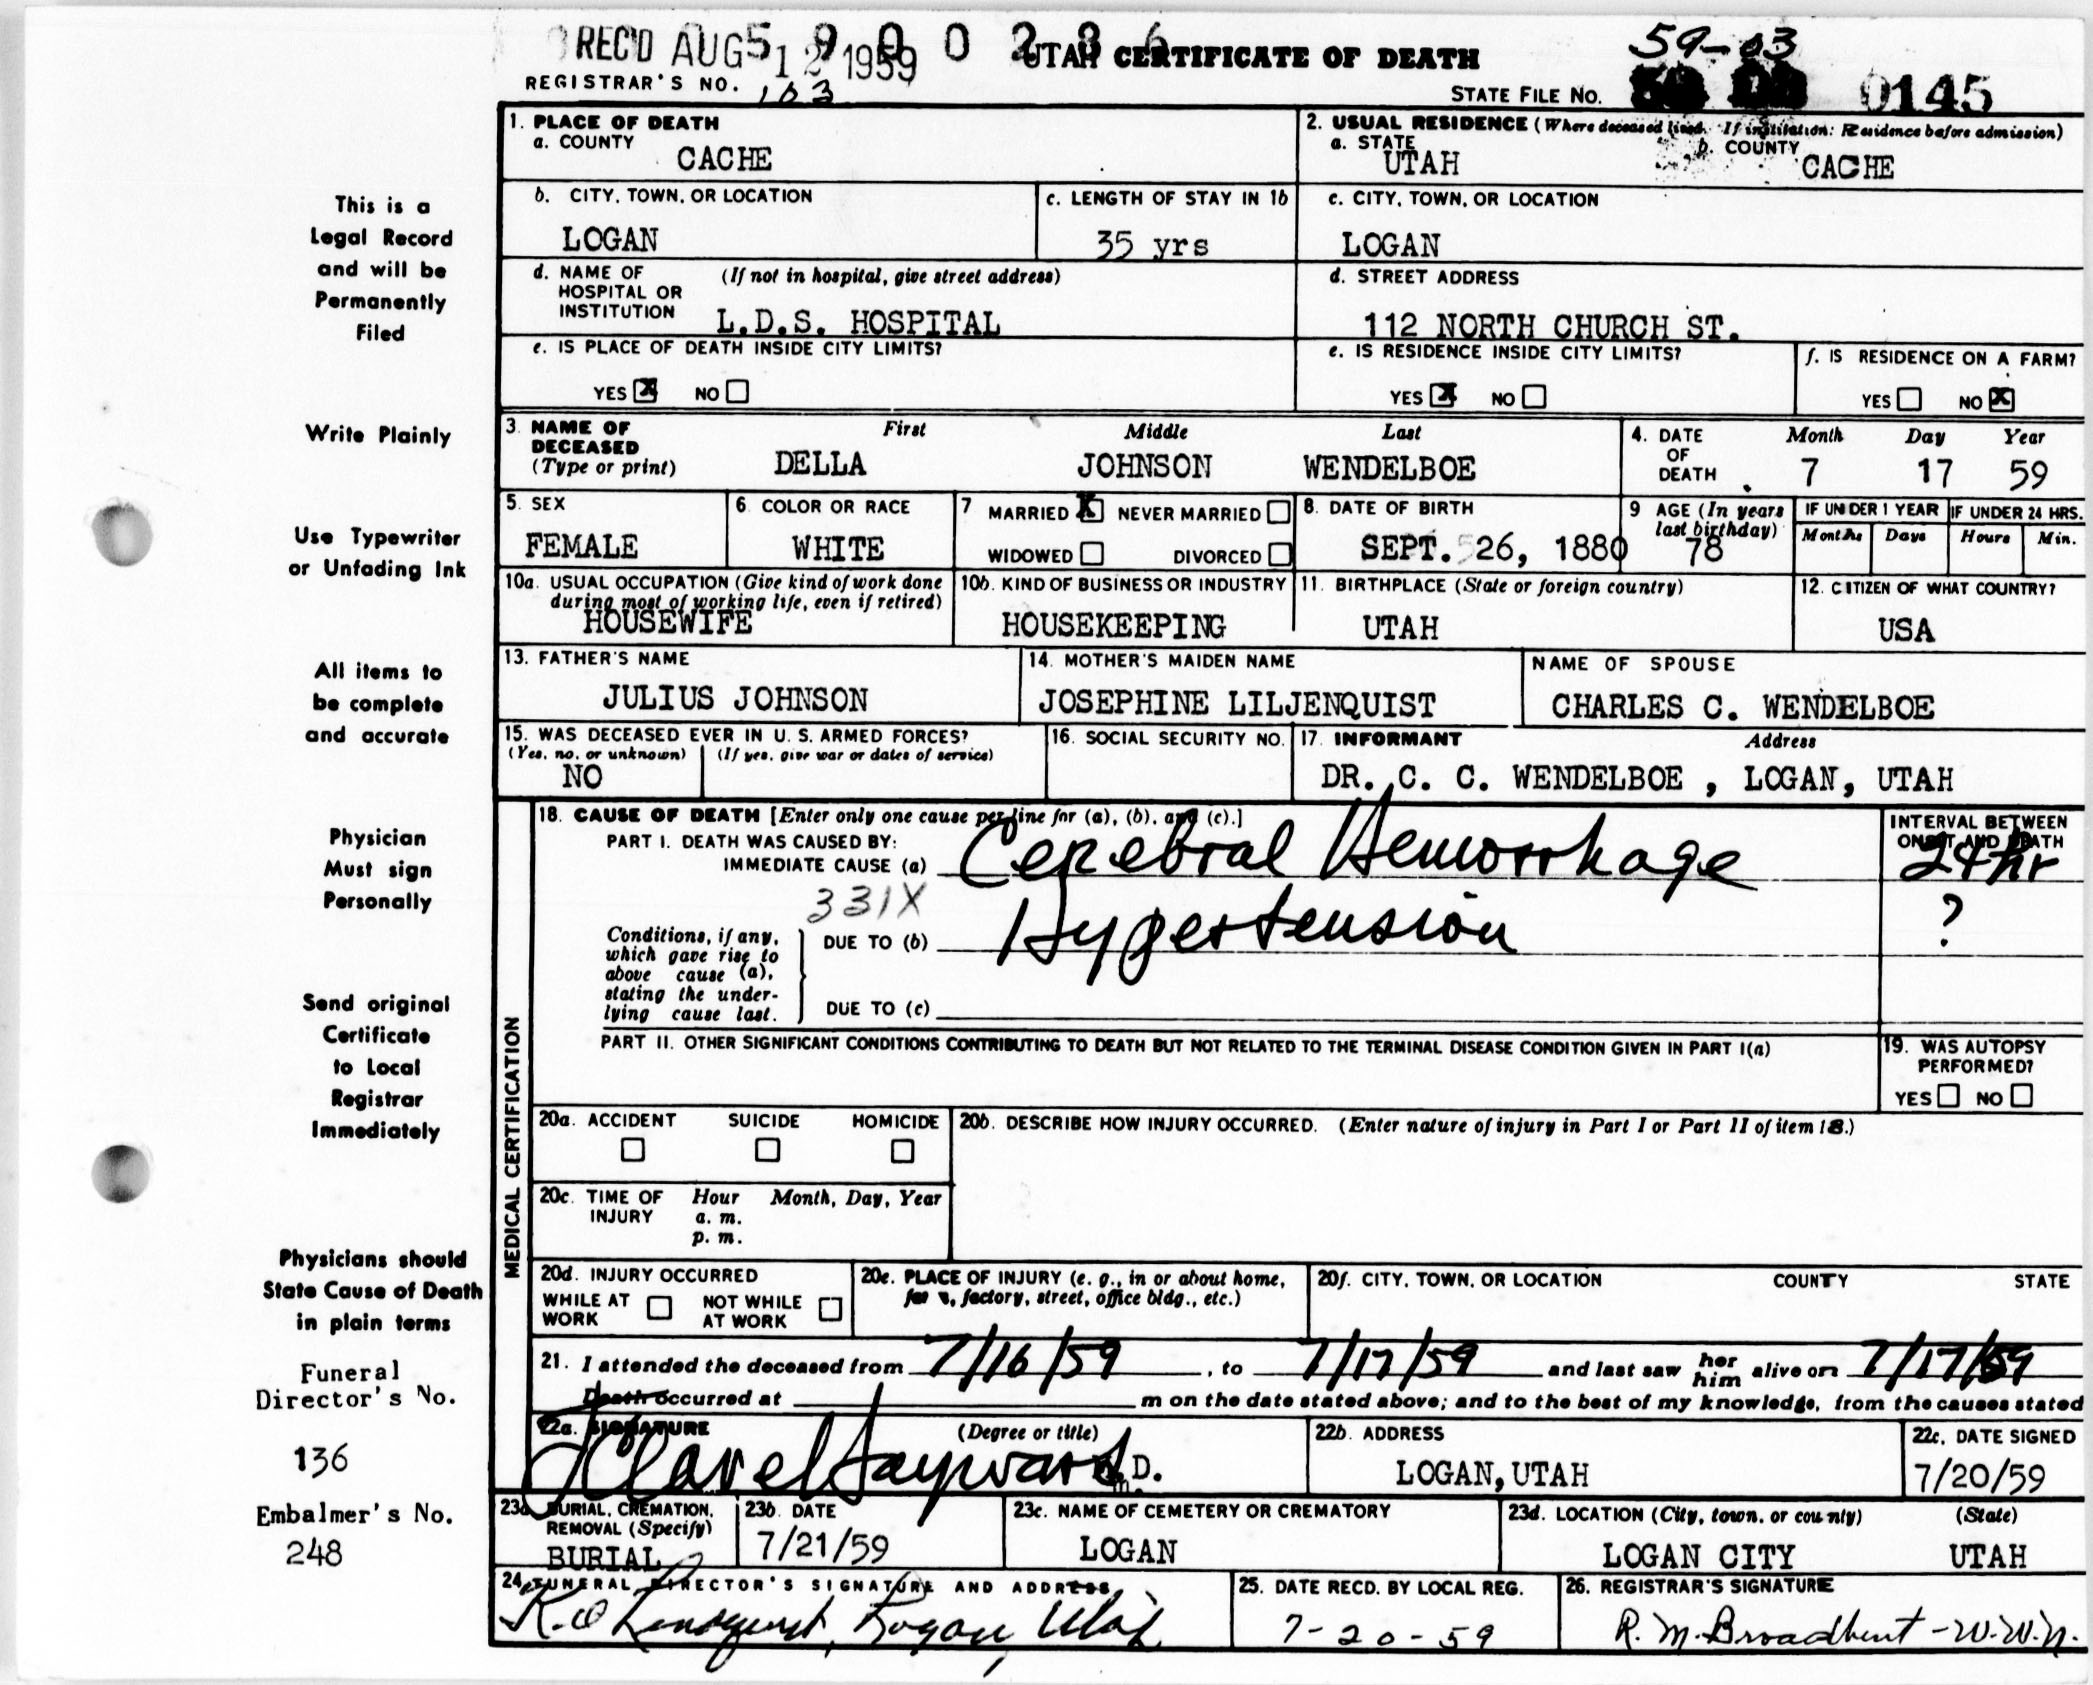 REC'D AUG 12 1959
5 9 0 0 0 2 8 6
UTAH CERTIFICATE OF DEATH
59-03
REGISTRAR'S NO. 103
STATE FILE NO. 0145
1. PLACE OF DEATH
a. COUNTY
CACHE
2. USUAL RESIDENCE (Where deceased lived. If institution: Residence before admission)
a. STATE
UTAH
b. COUNTY
CACHE
b. CITY, TOWN, OR LOCATION
LOGAN
c. LENGTH OF STAY IN 1b
35 yrs
c. CITY, TOWN, OR LOCATION
LOGAN
d. NAME OF HOSPITAL OR INSTITUTION (If not in hospital, give street address)
L.D.S. HOSPITAL
d. STREET ADDRESS
112 NORTH CHURCH ST.
e. IS PLACE OF DEATH INSIDE CITY LIMITS?
YES X NO
e. IS RESIDENCE INSIDE CITY LIMITS?
YES X NO
f. IS RESIDENCE ON A FARM?
YES NO X
3. NAME OF DECEASED (Type or print)
First Middle Last
DELLA JOHNSON WENDELBOE
4. DATE OF DEATH
Month Day Year
7 17 59
5. SEX
FEMALE
6. COLOR OR RACE
WHITE
7 MARRIED X NEVER MARRIED
WIDOWED DIVORCED
8. DATE OF BIRTH
SEPT. 26, 1880
9 AGE (In years last birthday)
78
IF UNDER 1 YEAR
Months Days
IF UNDER 24 HRS.
Hours Min.
10a. USUAL OCCUPATION (Give kind of work done during most of working life, even if retired)
HOUSEWIFE
10b. KIND OF BUSINESS OR INDUSTRY
HOUSEKEEPING
11. BIRTHPLACE (State or foreign country)
UTAH
12. CITIZEN OF WHAT COUNTRY?
USA
13. FATHER'S NAME
JULIUS JOHNSON
14. MOTHER'S MAIDEN NAME
JOSEPHINE LILJENQUIST
NAME OF SPOUSE
CHARLES C. WENDELBOE
15. WAS DECEASED EVER IN U. S. ARMED FORCES?
(Yes, no, or unknown) (If yes, give war or dates of service)
NO
16. SOCIAL SECURITY NO.
17. INFORMANT Address
DR. C. C. WENDELBOE , LOGAN, UTAH
MEDICAL CERTIFICATION
18. CAUSE OF DEATH [Enter only one cause per line for (a), (b), and (c).]
PART I. DEATH WAS CAUSED BY:
IMMEDIATE CAUSE (a) Cerebral Hemorrhage
331X
Conditions, if any, which gave rise to above cause (a), stating the underlying cause last.
DUE TO (b) Hypertension
DUE TO (c)
INTERVAL BETWEEN ONSET AND DEATH
24 hr
?
PART II. OTHER SIGNIFICANT CONDITIONS CONTRIBUTING TO DEATH BUT NOT RELATED TO THE TERMINAL DISEASE CONDITION GIVEN IN PART I(a)
19. WAS AUTOPSY PERFORMED?
YES NO
20a. ACCIDENT SUICIDE HOMICIDE
20b. DESCRIBE HOW INJURY OCCURRED. (Enter nature of injury in Part I or Part II of item 18.)
20c. TIME OF INJURY Hour Month, Day, Year
a. m.
p. m.
20d. INJURY OCCURRED
WHILE AT WORK NOT WHILE AT WORK
20e. PLACE OF INJURY (e. g., in or about home, farm, factory, street, office bldg., etc.)
20f. CITY, TOWN, OR LOCATION COUNTY STATE
21. I attended the deceased from 7/16/59, to 7/17/59 and last saw her him alive on 7/17/59
Death occurred at m on the date stated above; and to the best of my knowledge, from the causes stated
22a. SIGNATURE (Degree or title)
J Clare Hayward m.D.
22b. ADDRESS
LOGAN, UTAH
22c. DATE SIGNED
7/20/59
23a. BURIAL, CREMATION, REMOVAL (Specify)
BURIAL
23b. DATE
7/21/59
23c. NAME OF CEMETERY OR CREMATORY
LOGAN
23d. LOCATION (City, town, or county) (State)
LOGAN CITY UTAH
24. FUNERAL DIRECTOR'S SIGNATURE AND ADDRESS
Logan, Utah
25. DATE RECD. BY LOCAL REG.
7-20-59
26. REGISTRAR'S SIGNATURE
R. M. Broadbent - W.W.N.
This is a
Legal Record
and will be
Permanently
Filed
Write Plainly
Use Typewriter
or Unfading Ink
All items to
be complete
and accurate
Physician
Must sign
Personally
Send original
Certificate
to Local
Registrar
Immediately
Physicians should
State Cause of Death
in plain terms
Funeral
Director's No.
136
Embalmer's No.
248